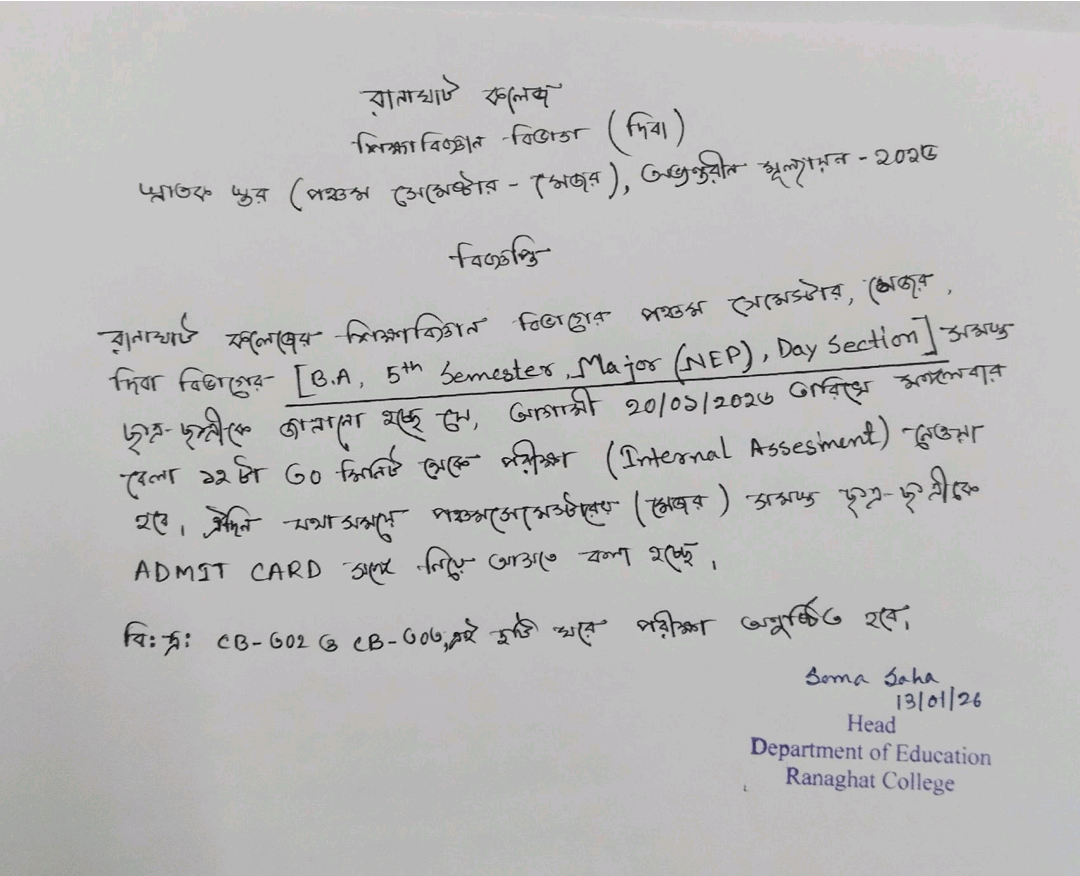 রানাঘাট কলেজ
শিক্ষাবিজ্ঞান বিভাগ (দিবা)
স্নাতক স্তর (পঞ্চম সেমেষ্টার - মেজর), অভ্যন্তরীন মূল্যায়ন - ২০২৬
বিজ্ঞপ্তি
রানাঘাট কলেজের শিক্ষাবিজ্ঞান বিভাগের পঞ্চম সেমেস্টার, মেজর,
দিবা বিভাগের [B.A, 5th Semester, Major (NEP), Day Section] সমস্ত
ছাত্র-ছাত্রীকে জানানো হচ্ছে যে, আগামী ২০/০১/২০২৬ তারিখে মঙ্গলবার
বেলা ১২টা ৩০ মিনিট থেকে পরীক্ষা (Internal Assesment) নেওয়া
হবে। ঐদিন যথাসময়ে পঞ্চমসেমেস্টারের (মেজর) সমস্ত ছাত্র-ছাত্রীকে
ADMIT CARD সঙ্গে নিয়ে আসতে বলা হচ্ছে।
বি:দ্র: CB-৩০২ ও CB-৩০৬,এই দুটি ঘরে পরীক্ষা অনুষ্ঠিত হবে।
Soma Saha
13/01/26
Head
Department of Education
Ranaghat College